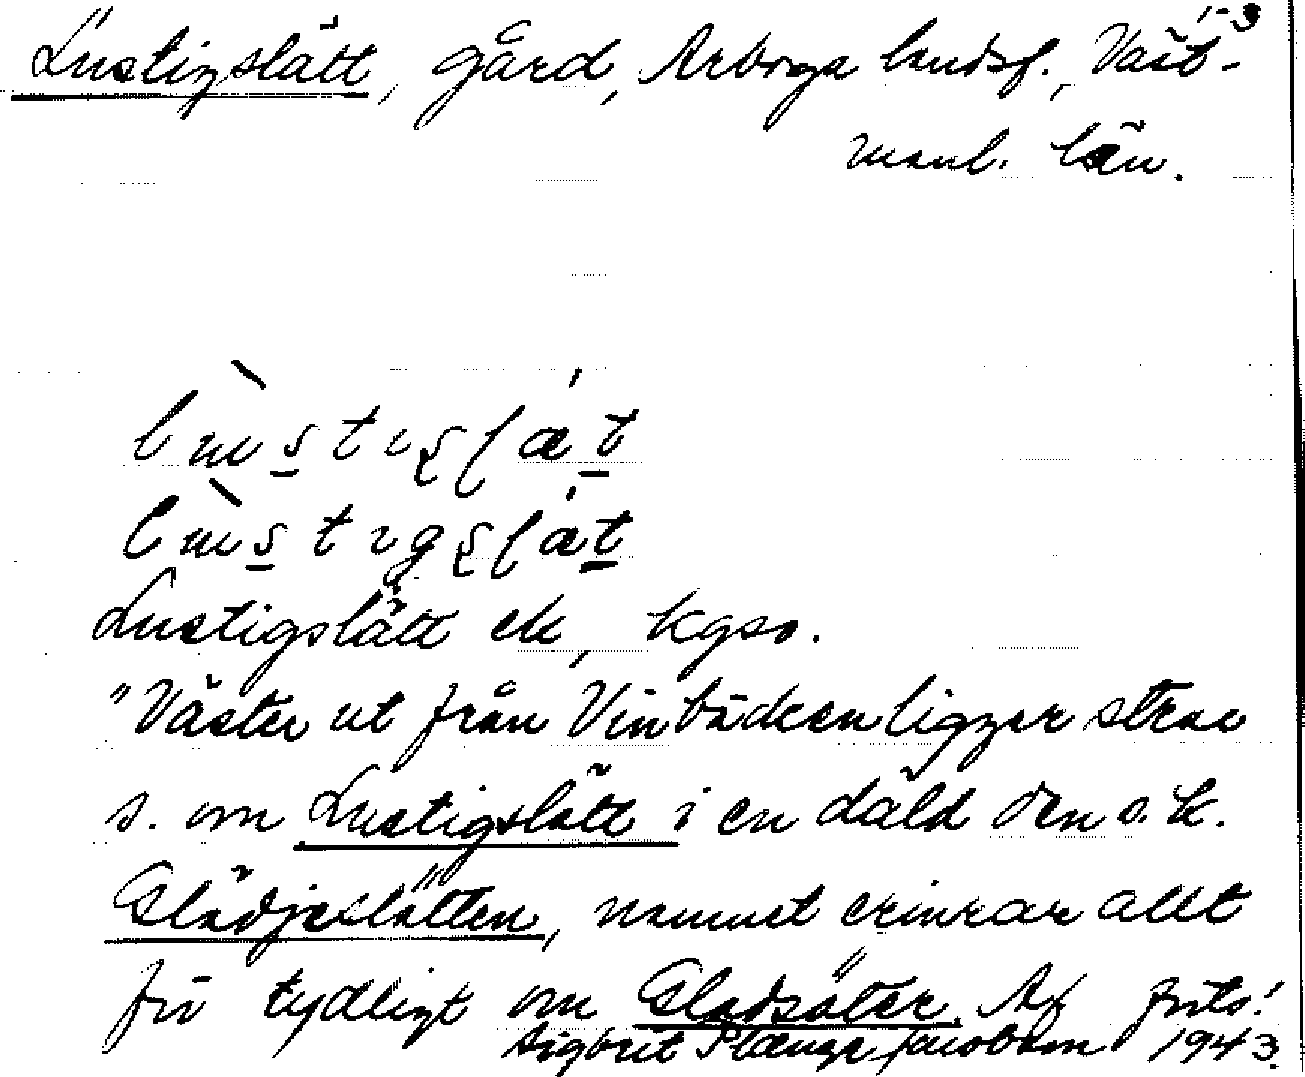 1-3
Lustigslätt, gård, Arboga landsf., Väst-
manl. län.
Lustigslätt ek, kgso.
"Väster ut från Vinbäcken ligger strax
s. om Lustigslätt i en däld den s.k.
Glädjeslätten, namnet erinrar allt
för tydligt om Gladsäter. Af forts!
Sigbrit Plænge Jacobson 1943.